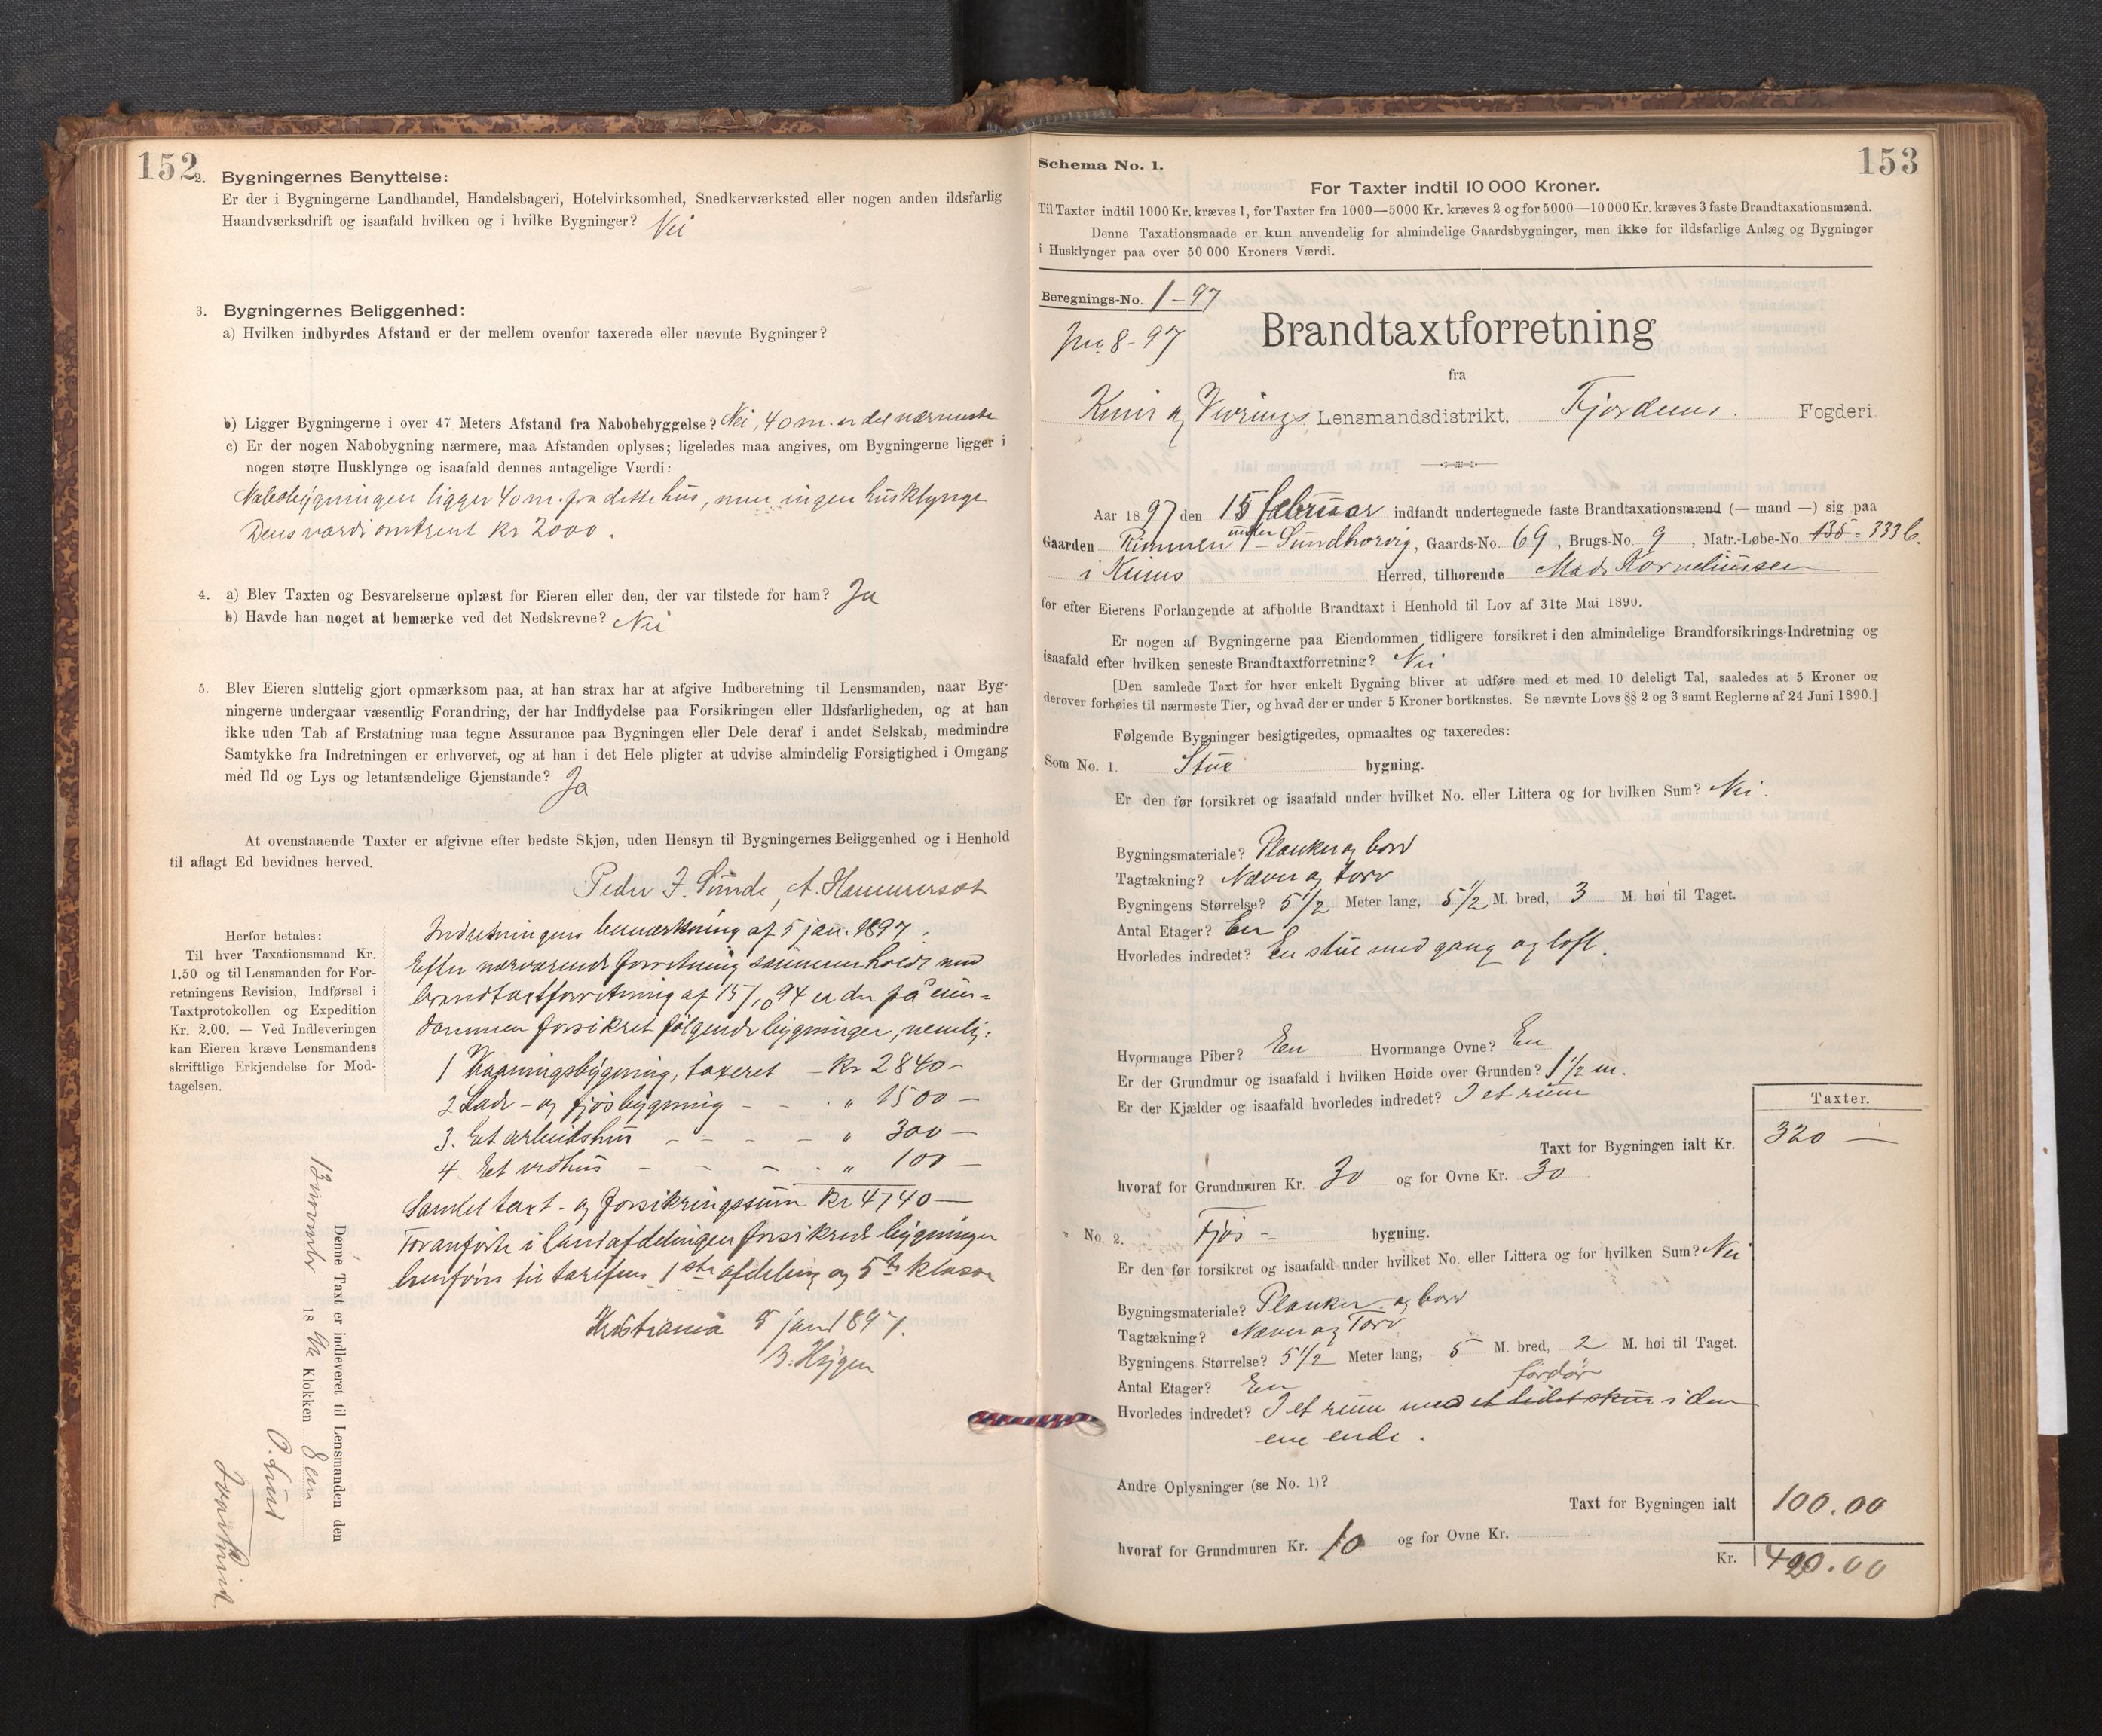 152
2. Bygningernes Benyttelse:
Er der i Bygningerne Landhandel, Handelsbageri, Hotelvirksomhed, Snedkerværksted eller nogen anden ildsfarlig
Haandværksdrift og isaafald hvilken og i hvilke Bygninger? Nei
3. Bygningernes Beliggenhed:
a) Hvilken indbyrdes Afstand er der mellem ovenfor taxerede eller nævnte Bygninger?
b) Ligger Bygningerne i over 47 Meters Afstand fra Nabobebyggelse? Nei, 40 m. er det nærmeste
c) Er der nogen Nabobygning nærmere, maa Afstanden oplyses; ligeledes maa angives, om Bygningerne ligger i
nogen større Husklynge og isaafald dennes antagelige Værdi:
Nabobygningen ligger 40 m. fra dette hus, men ingen husklynge
Dens værdi omtrent kr 2000.
4. a) Blev Taxten og Besvarelserne oplæst for Eieren eller den, der var tilstede for ham? Ja
b) Havde han noget at bemærke ved det Nedskrevne? Nei
5. Blev Eieren sluttelig gjort opmærksom paa, at han strax har at afgive Indberetning til Lensmanden, naar Byg-
ningerne undergaar væsentlig Forandring, der har Indflydelse paa Forsikringen eller Ildsfarligheden, og at han
ikke uden Tab af Erstatning maa tegne Assurance paa Bygningen eller Dele deraf i andet Selskab, medmindre
Samtykke fra Indretningen er erhvervet, og at han i det Hele pligter at udvise almindelig Forsigtighed i Omgang
med Ild og Lys og letantændelige Gjenstande? Ja
At ovenstaaende Taxter er afgivne efter bedste Skjøn, uden Hensyn til Bygningernes Beliggenhed og i Henhold
til aflagt Ed bevidnes herved.
Peder J. Sunde, A. Hammerset
Herfor betales:
Til hver Taxationsmand Kr.
1.50 og til Lensmanden for For-
retningens Revision, Indførsel i
Taxtprotokollen og Expedition
Kr. 2.00. — Ved Indleveringen
kan Eieren kræve Lensmandens
skriftlige Erkjendelse for Mod-
tagelsen.
Indretningens bemærkning af 5 jan. 1897.
Efter nærværende forretning sammenholdt med
brandtaxtforretning af 15/10 94 er der på eien-
dommen forsikret følgende bygninger, nemlig:
1 Vaaningsbygning, taxeret – Kr 2840 –
2 Lade - og fjøsbygning - - " 1500 –
3. Et arbeidshus - - - - " 300 –
4 Et vedhus - - - - " 100 –
Samlet taxt - og forsikringssum Kr 4740 –
Foranførte i landafdelingen forsikrede bygninger
henføres til tarifens 1ste afdeling og 5te klasse
Kristiania 5 jan 1897.
Denne Taxt er indleveret til Lensmanden den
18 96 Klokken
153
Schema No. 1.
For Taxter indtil 10 000 Kroner.
Til Taxter indtil 1000 Kr. kræves 1, for Taxter fra 1000—5000 Kr. kræves 2 og for 5000—10 000 Kr. kræves 3 faste Brandtaxationsmænd.
Denne Taxationsmaade er kun anvendelig for almindelige Gaardsbygninger, men ikke for ildsfarlige Anlæg og Bygninger
i Husklynger paa over 50 000 Kroners Værdi.
Beregnings-No. 1 – 97
8 - 97
Brandtaxtforretning
fra
Kinn og Vevrings Lensmandsdistrikt, Fjordenes Fogderi
Aar 1897 den 15 februar indfandt undertegnede faste Brandtaxationsmænd (— mand —) sig paa
Gaarden Rimmen under Sundhorvig, Gaards-No. 69, Brugs-No. 9, Matr.-Løbe-No. 135 - 333 b.
i Kinns Herred, tilhørende Mads Korneliussen
for efter Eierens Forlangende at afholde Brandtaxt i Henhold til Lov af 31te Mai 1890.
Er nogen af Bygningerne paa Eiendommen tidligere forsikret i den almindelige Brandforsikrings-Indretning og
isaafald efter hvilken seneste Brandtaxtforretning? Nei
[Den samlede Taxt for hver enkelt Bygning bliver at udføre med et med 10 deleligt Tal, saaledes at 5 Kroner og
derover forhøies til nærmeste Tier, og hvad der er under 5 Kroner bortkastes. Se nævnte Lovs §§ 2 og 3 samt Reglerne af 24 Juni 1890.]
Følgende Bygninger besigtigedes, opmaaltes og taxeredes:
Som No. 1. Stue bygning.
Er den før forsikret og isaafald under hvilket No. eller Littera og for hvilken Sum? Nei.
Bygningsmateriale? Planker og bord
Tagtækning? Næver og torv
Bygningens Størrelse? 5 1/2 Meter lang, 5 1/2 M. bred, 3 M. høi til Taget.
Antal Etager? En
Hvorledes indredet? En stue med gang og loft.
Hvormange Piber? En Hvormange Ovne? En
Er der Grundmur og isaafald i hvilken Høide over Grunden? 1 1/2 m.
Er der Kjælder og isaafald hvorledes indredet? I et rum
Taxter.
Taxt for Bygningen ialt Kr. 320 —
hvoraf for Grundmuren Kr. 30 og for Ovne Kr. 30
" No. 2. Fjøs - bygning.
Er den før forsikret og isaafald under hvilket No. eller Littera og for hvilken Sum? Nei
Bygningsmateriale? Planker og bord
Tagtækning? Næver og Torv
Bygningens Størrelse? 5 1/2 Meter lang, 5 M. bred, 2 M. høi til Taget.
Antal Etager? En
fordør
Hvorledes indredet? I et rum med et lidet skur i den
ene ende.
Andre Oplysninger (se No. 1)?
Taxt for Bygningen ialt 100.00
hvoraf for Grundmuren Kr. 10 og for Ovne Kr.
Kr. 420.00